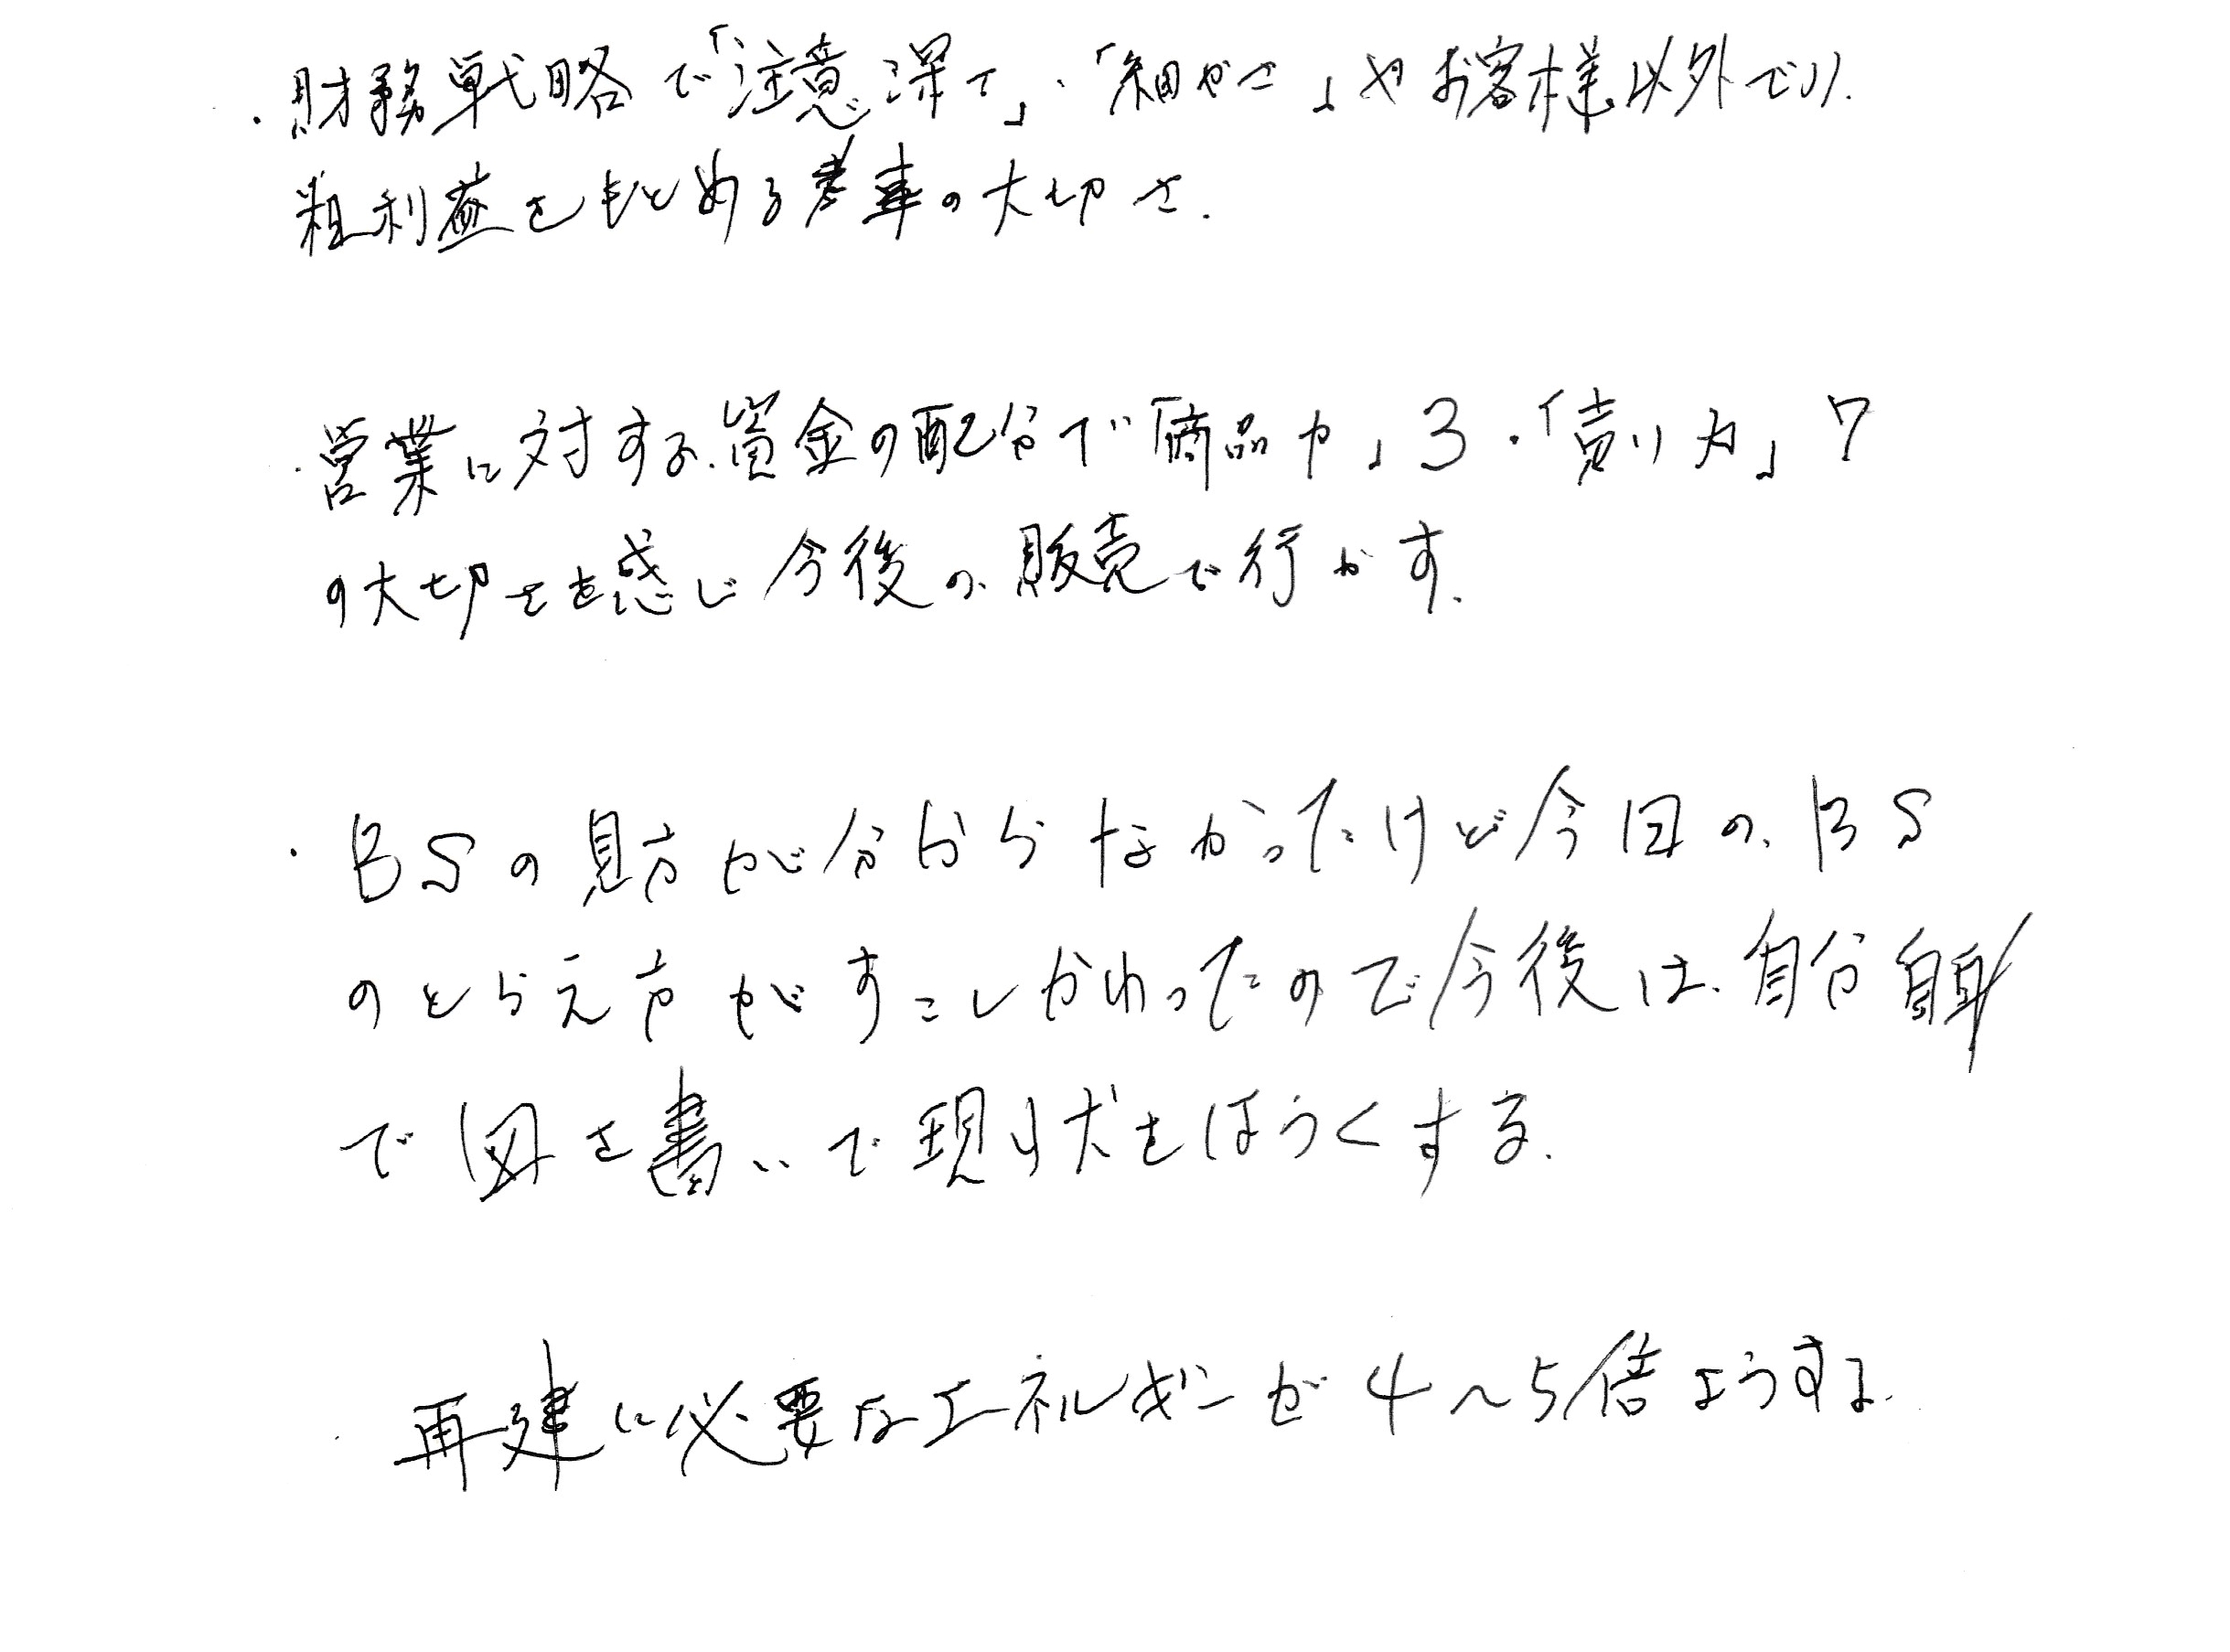 ・財務戦略で「注意深さ」・「細かさ」やお客様以外での
粗利益をもとめる事の大切さ.
・営業に対する資金の配分で「商品力」3・「売り力」7
の大切さを感じ今後の販売で行かす.
・BSの見方が分からなかったけど今日のBS
のとらえ方がすこしかわったので今後は自分自身
で図を書いて現状をはあくする.
・再建に必要なエネルギーが4〜5倍ようする.